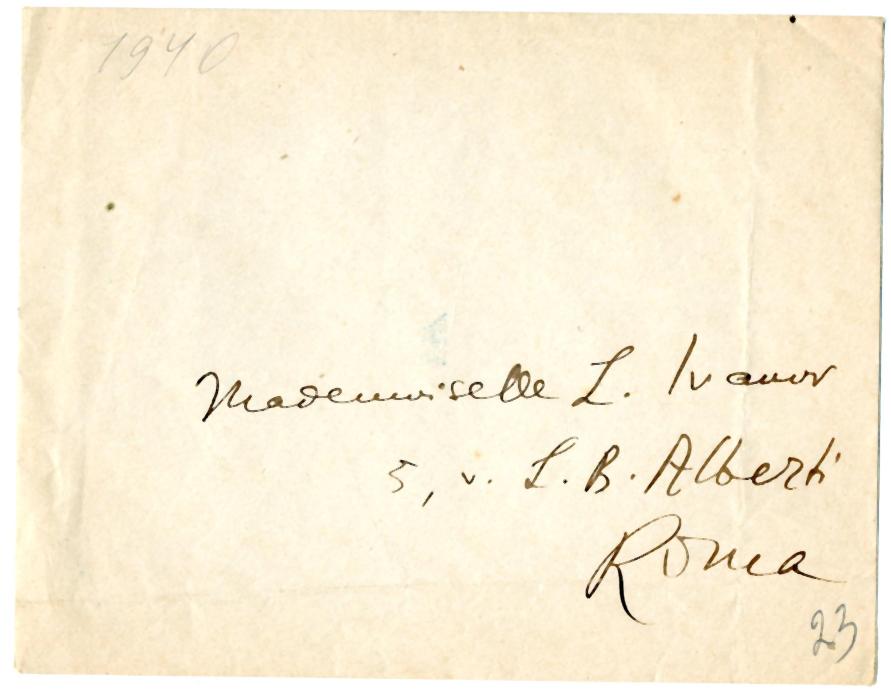 1940
Mademoiselle L. Ivanov
5, v. L. B. Alberti
Roma
23